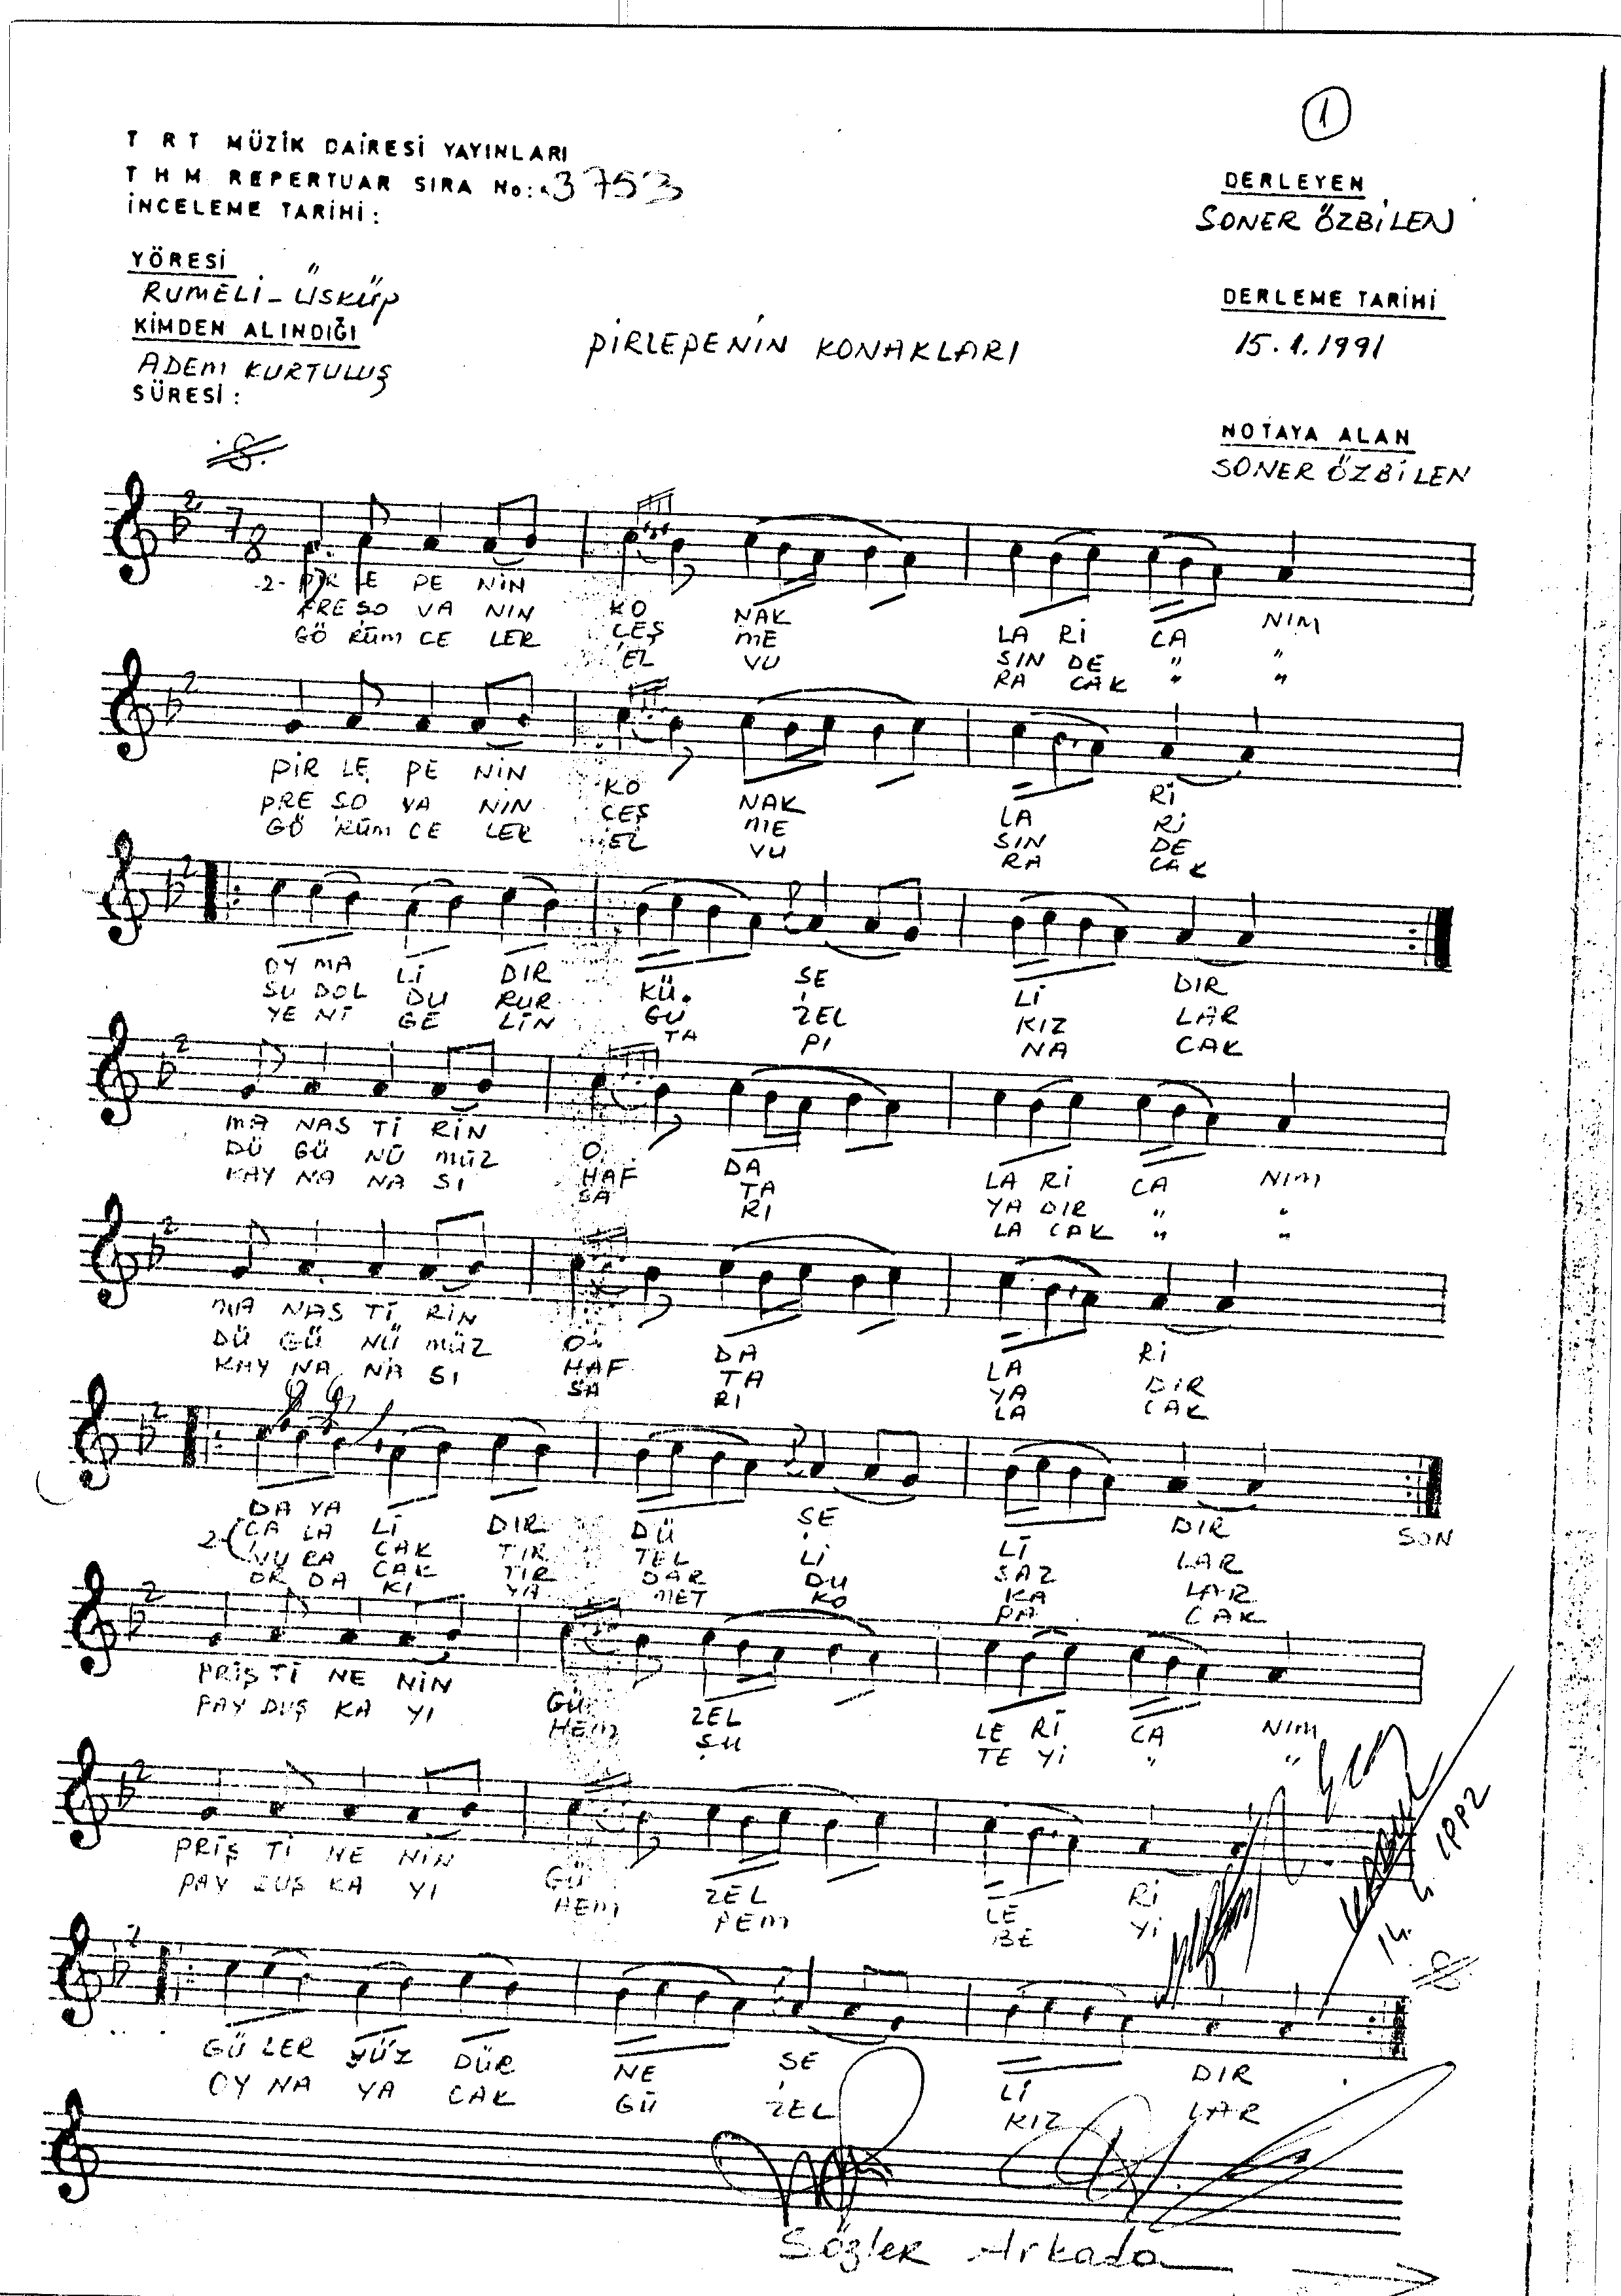 1
T R T MÜZİK DAİRESİ YAYINLARI
T H M REPERTUAR SIRA No: 3753
İNCELEME TARİHİ :
DERLEYEN
SONER ÖZBİLEN
YÖRESİ
RUMELİ - ÜSKÜP
KİMDEN ALINDIĞI
ADEM KURTULUŞ
SÜRESİ :
DERLEME TARİHİ
15.1.1991
PİRLEPENİN KONAKLARI
NOTAYA ALAN
SONER ÖZBİLEN
7 8
-2- PİR LE PE NİN KO NAK LA Rİ CA NIM
PRE SO VA NIN ÇEŞ ME SIN DE " "
GÖ RÜM CE LER EL VU RA CAK " "
PİR LE PE NİN KO NAK LA Rİ
PRE SO VA NIN ÇEŞ ME SİN DE
GÖ RÜM CE LER EL VU RA CAK
OY MA LI DIR KÜ ŞE Lİ DIR
SU DOL DU RUR GÜ ZEL KIZ LAR
YE Nİ GE LİN TA PI NA CAK
MA NAS TI RİN O DA LA Rİ CA NIM
DÜ GÜ NÜ MÜZ HAF TA YA DIR " "
KAY NA NA SI SA RI LA CAK " "
MA NAS TI RİN O DA LA Rİ
DÜ GÜ NÜ MÜZ HAF TA YA DIR
KAY NA NA SI SA RI LA CAK
DA YA LI DIR DÜ ŞE Lİ DIR SON
2- ÇA LA CAK TIR TEL Lİ SAZ LAR
VU RA CAK TIR DAR DU KA LAR
OR DA KI YA MET KO PA CAK
PRİŞ Tİ NE NİN GÜ ZEL LE Rİ CA NIM
PAY DUŞ KA YI HEM ŞU TE Yİ " "
PRİŞ Tİ NE NİN GÜ ZEL LE Rİ
PAY DUŞ KA YI HEM PEM BE Yİ
GÜ LER YÜZ DÜR NE ŞE Lİ DIR
OY NA YA CAK GÜ ZEL KIZ LAR
Sözler Arkada